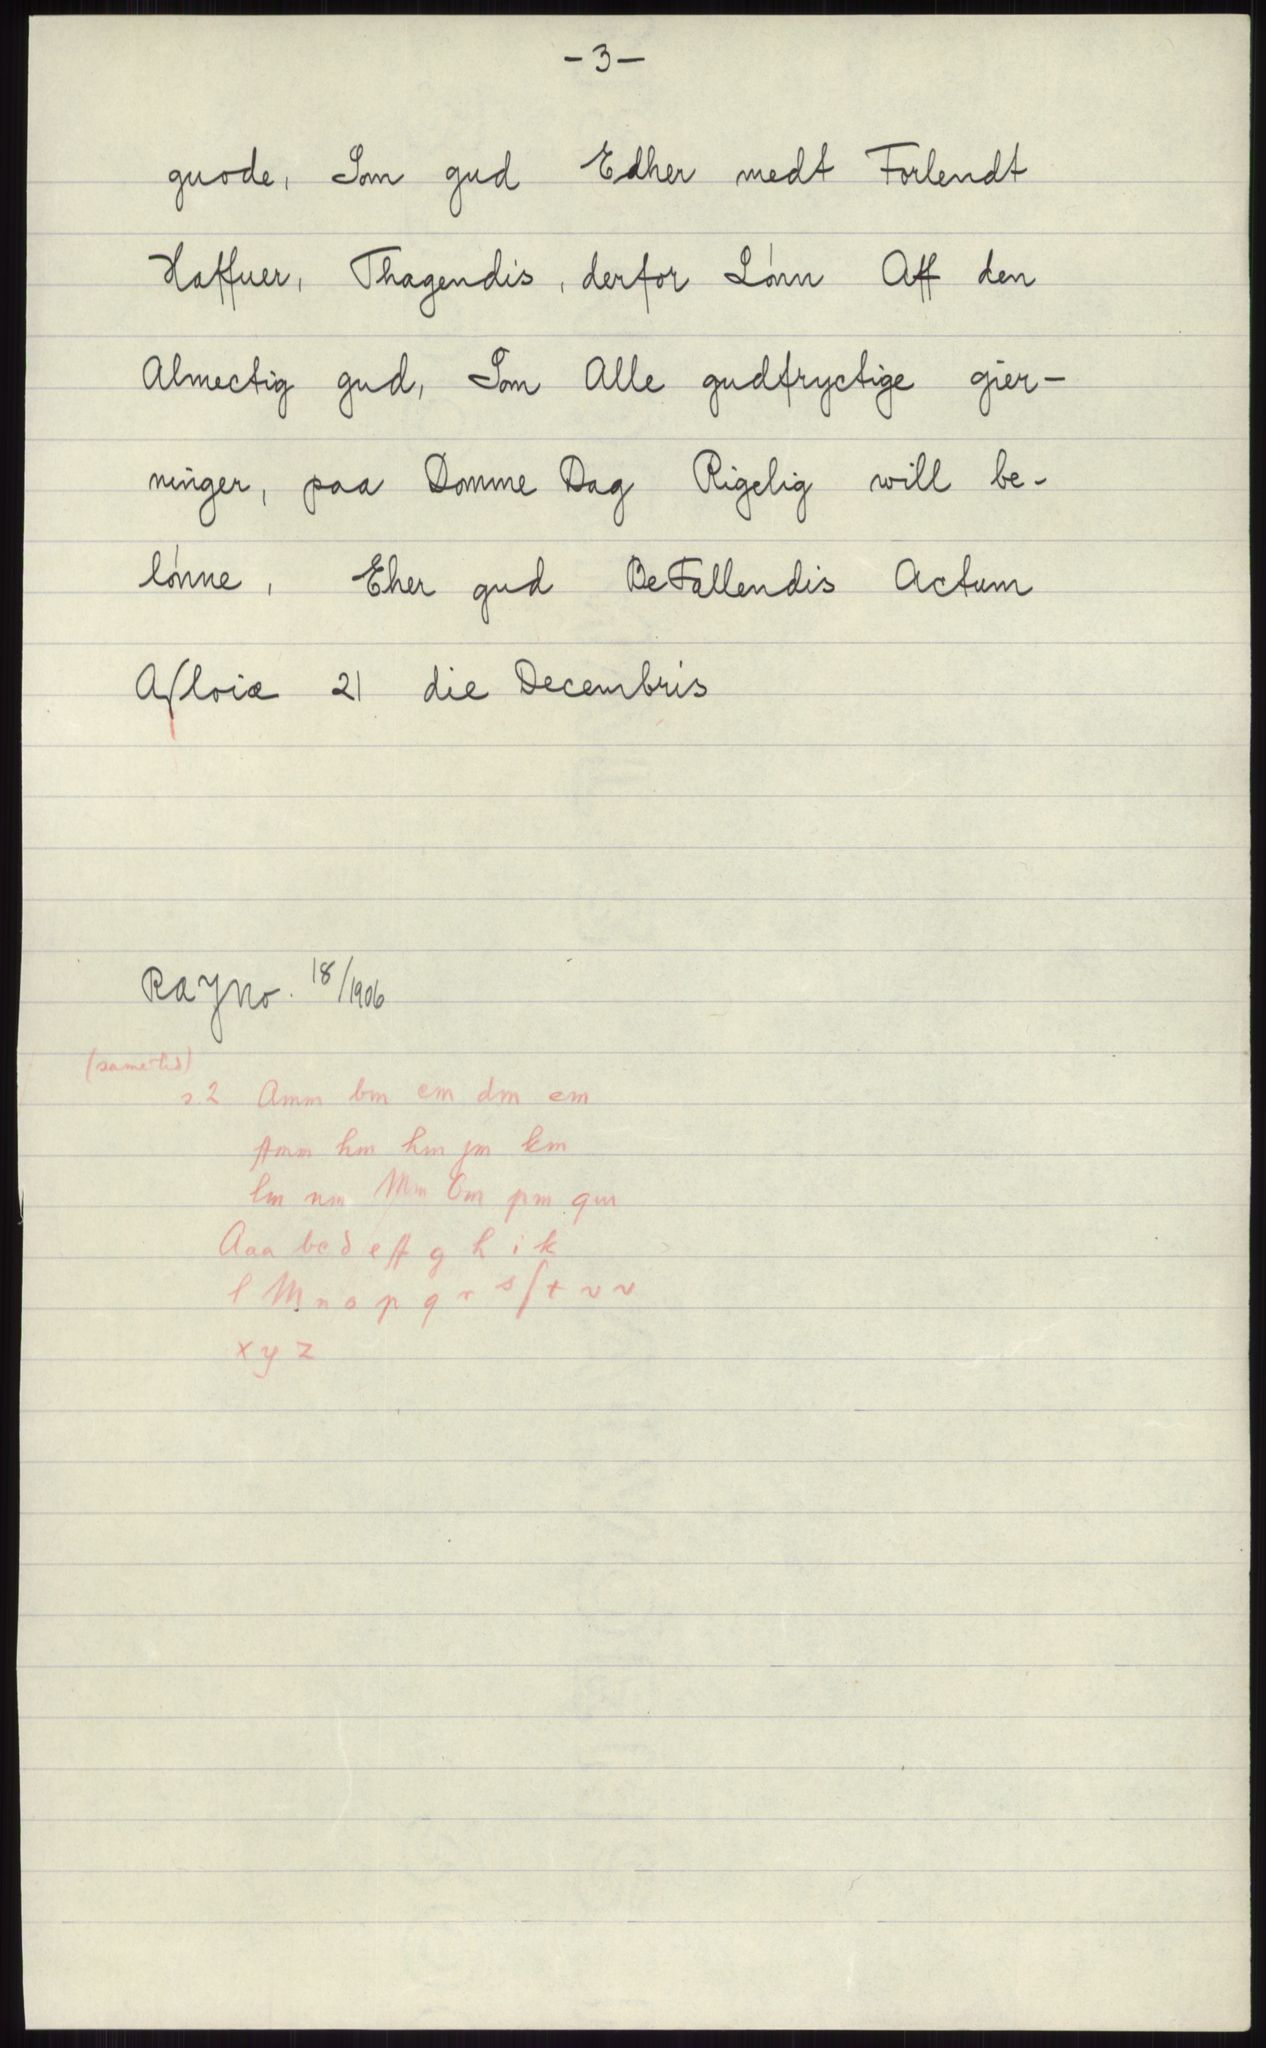 - 3 -
guode, Som gud Edher medt Forlendt
Haffuer, Thagendis, derfor Lónn Aff den
Almectig gud, Som Alle gudfryctige gier-
ninger, paa Domme Dag Rigelig will be-
lónne, Eher gud BeFallendis Actum
Asloiæ 21 die Decembris
RA JNo. 18/1906
(same tid)
s. 2 Amm bm cm dm em
ffmm hm hm jm km
lm nm Mm Om pm qm
Aaa bcd e ff g h i k
l M n o p q r s ſ t v v
x y z